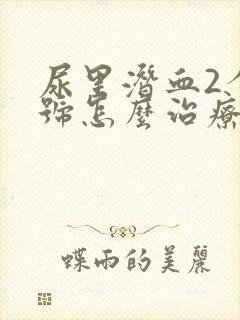 尿里潛血2个
號怎麼治療
蝶雨的美麗